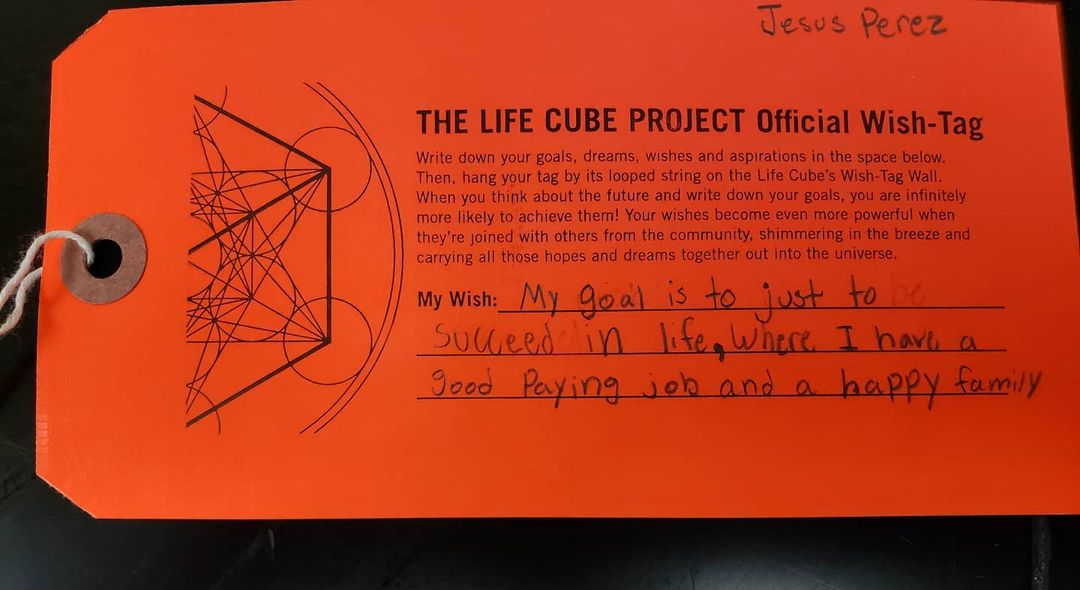 Jesus Perez
THE LIFE CUBE PROJECT Official Wish-Tag
Write down your goals, dreams, wishes and aspirations in the space below.
Then, hang your tag by its looped string on the Life Cube's Wish-Tag Wall.
When you think about the future and write down your goals, you are infinitely
more likely to achieve them! Your wishes become even more powerful when
they're joined with others from the community, shimmering in the breeze and
carrying all those hopes and dreams together out into the universe.
My Wish: My goal is to just to
Succeed in life, Where I have a
good Paying job and a happy family